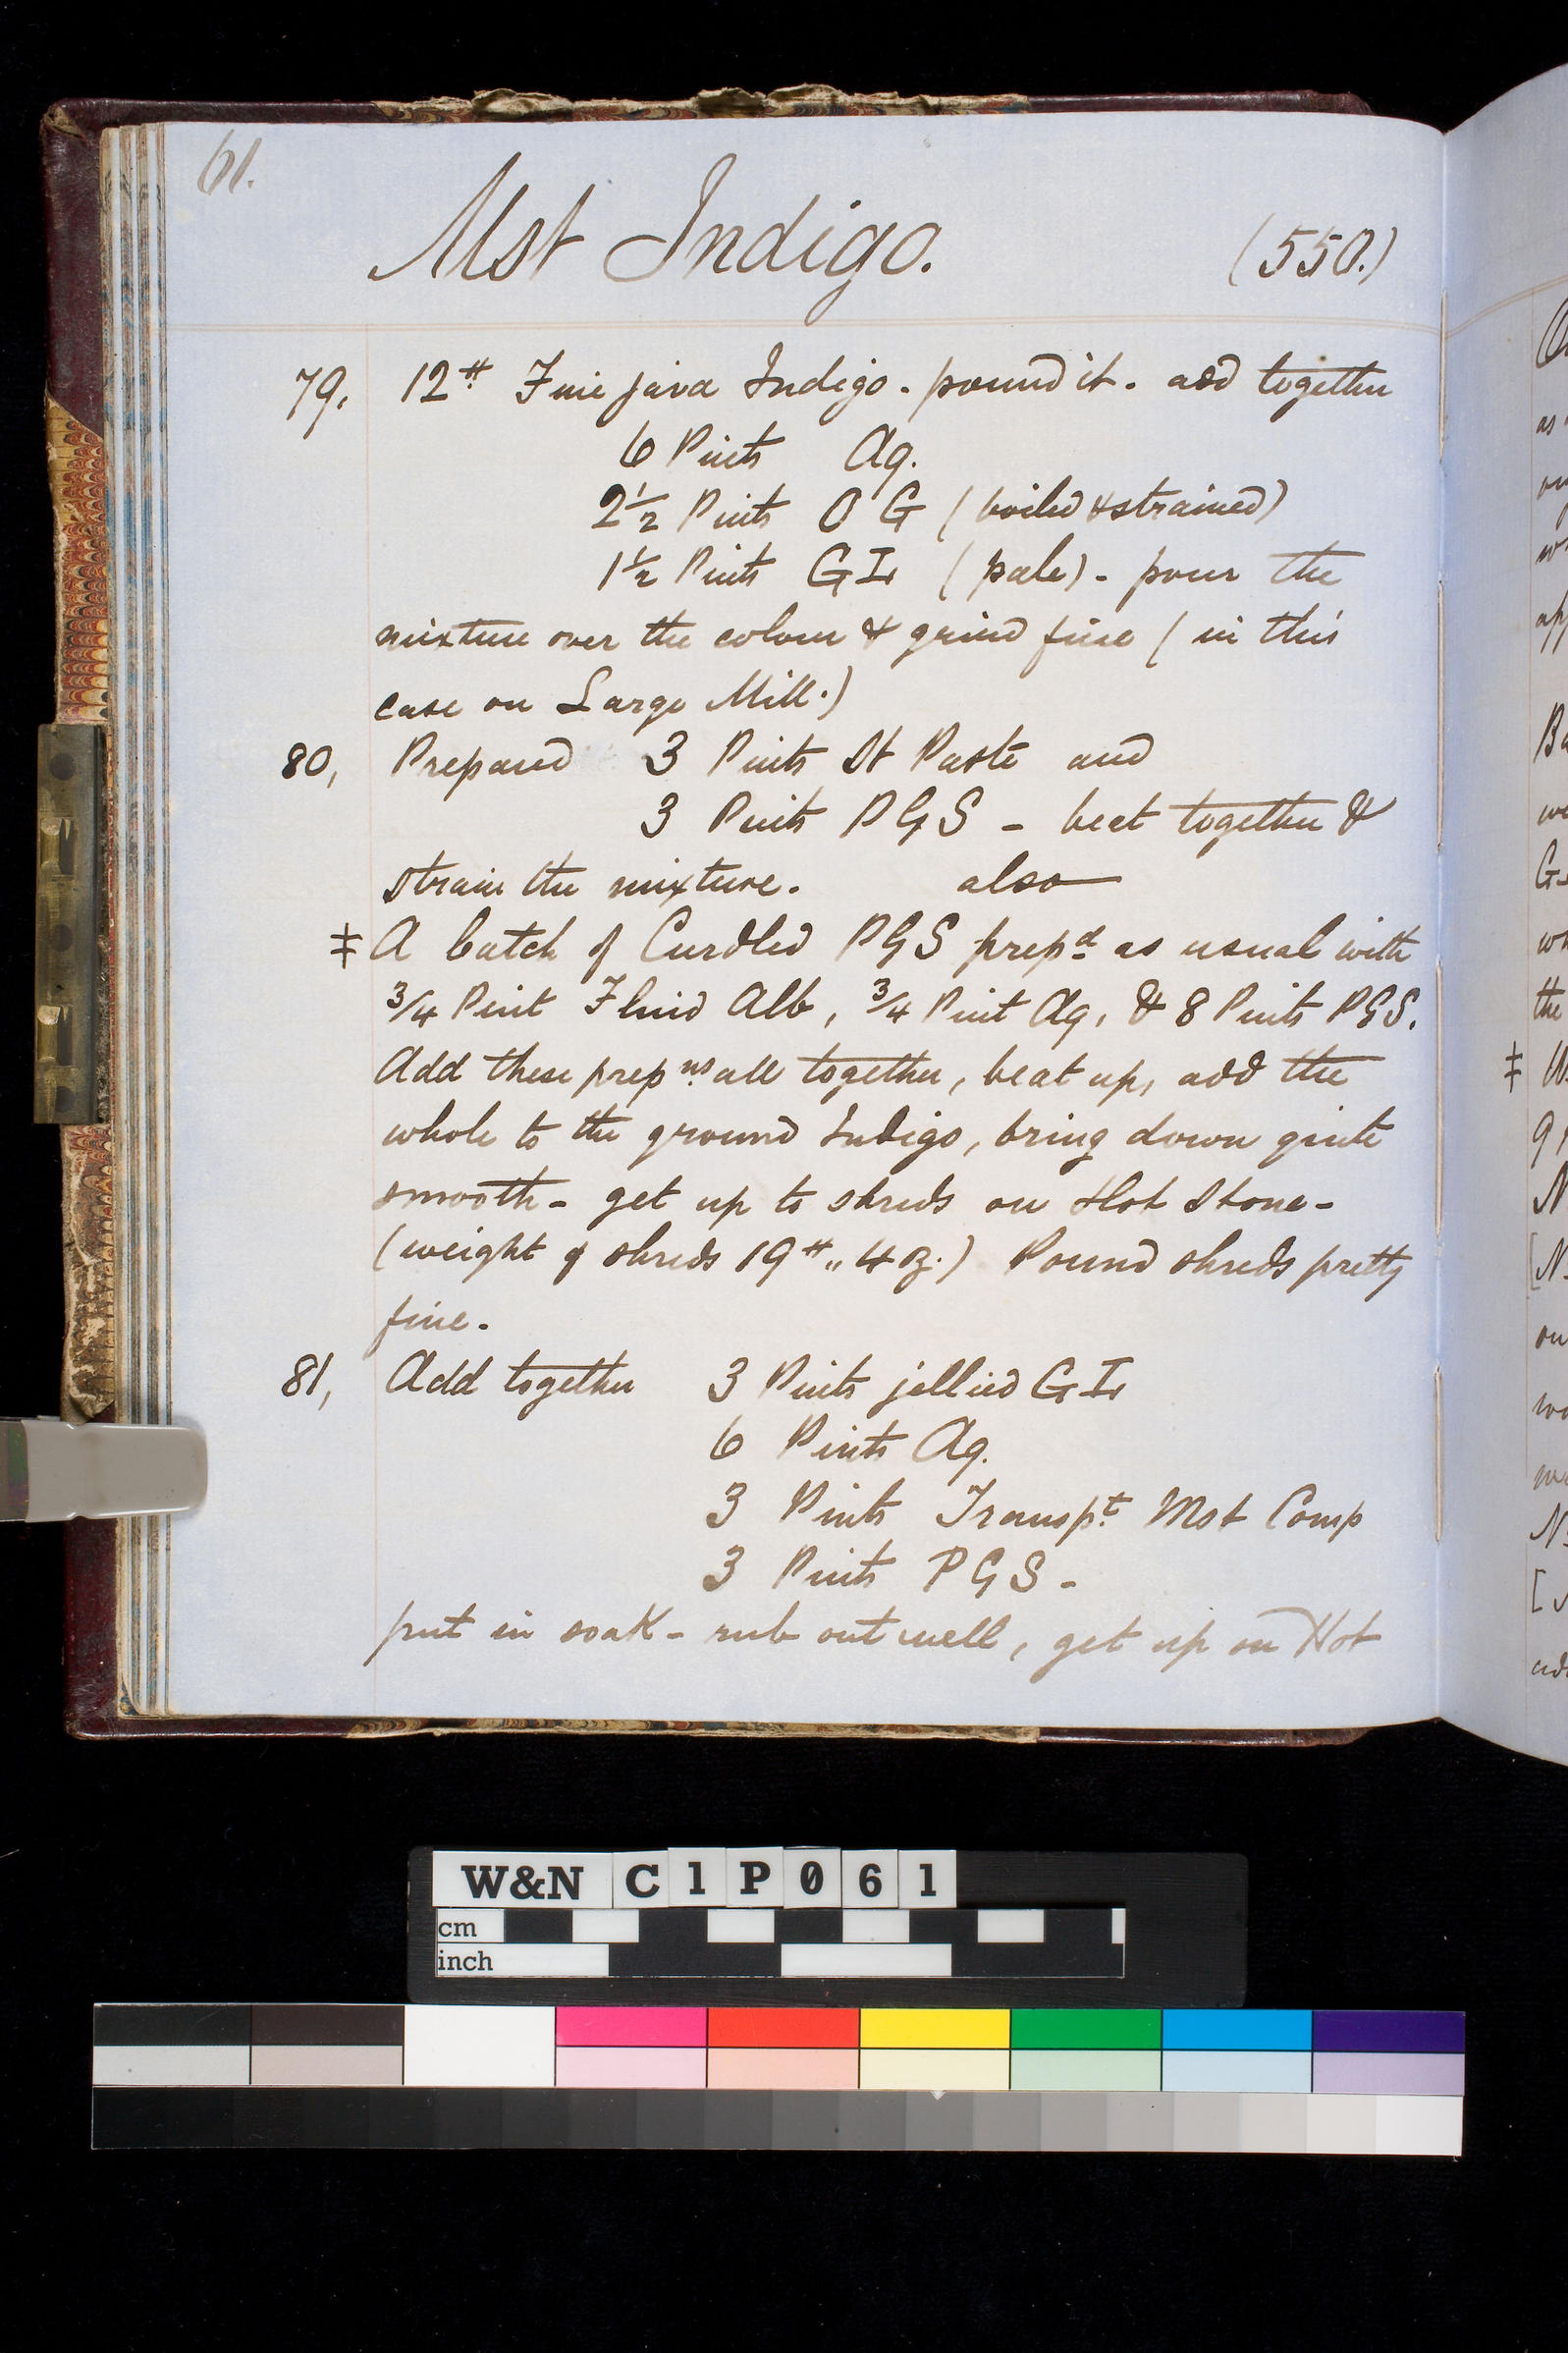 61.
Mst Indigo. (550.)
79. 12# Fine java Indigo - pound it - add together
6 Pints Aq.
2½ Pints O G (boiled & strained)
1½ Pints G I (pale) - pour the
mixture over the colour & grind fine (in this
case on Large Mill.)
80, Prepared 3 Pints St Paste and
3 Pints P G S - beat together &
strain the mixture. also
‡ A batch of Curdled P G S prepd as usual with
3/4 Pint Fluid Alb, 3/4 Pint Aq, & 8 Pints PGS.
Add these prepns all together, beat up, add the
whole to the ground Indigo, bring down quite
smooth - get up to shreds on Hot Stone -
(weight of shreds 19# " 4 oz.) Pound shreds pretty
fine -
81, Add together 3 Pints jellied G I
6 Pints Aq.
3 Pints Transpt Mst Comp
3 Pints P G S -
put in soak - rub out well, get up on Hot
as
Ba
we
G
the
‡
9
N
[N
on
N
[
W&N C1P061
cm
inch